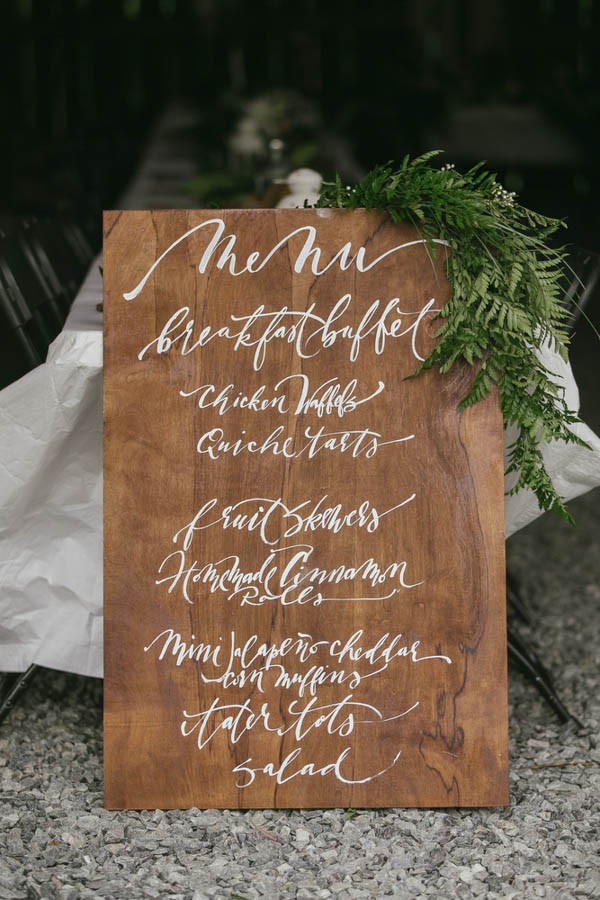 Menu
breakfast buffet
Chicken Waffels
Quiche tarts
fruit Skewers
Homemade Cinnamon
Rolls
Mini Jalapeño cheddar
corn muffins
tater tots
salad